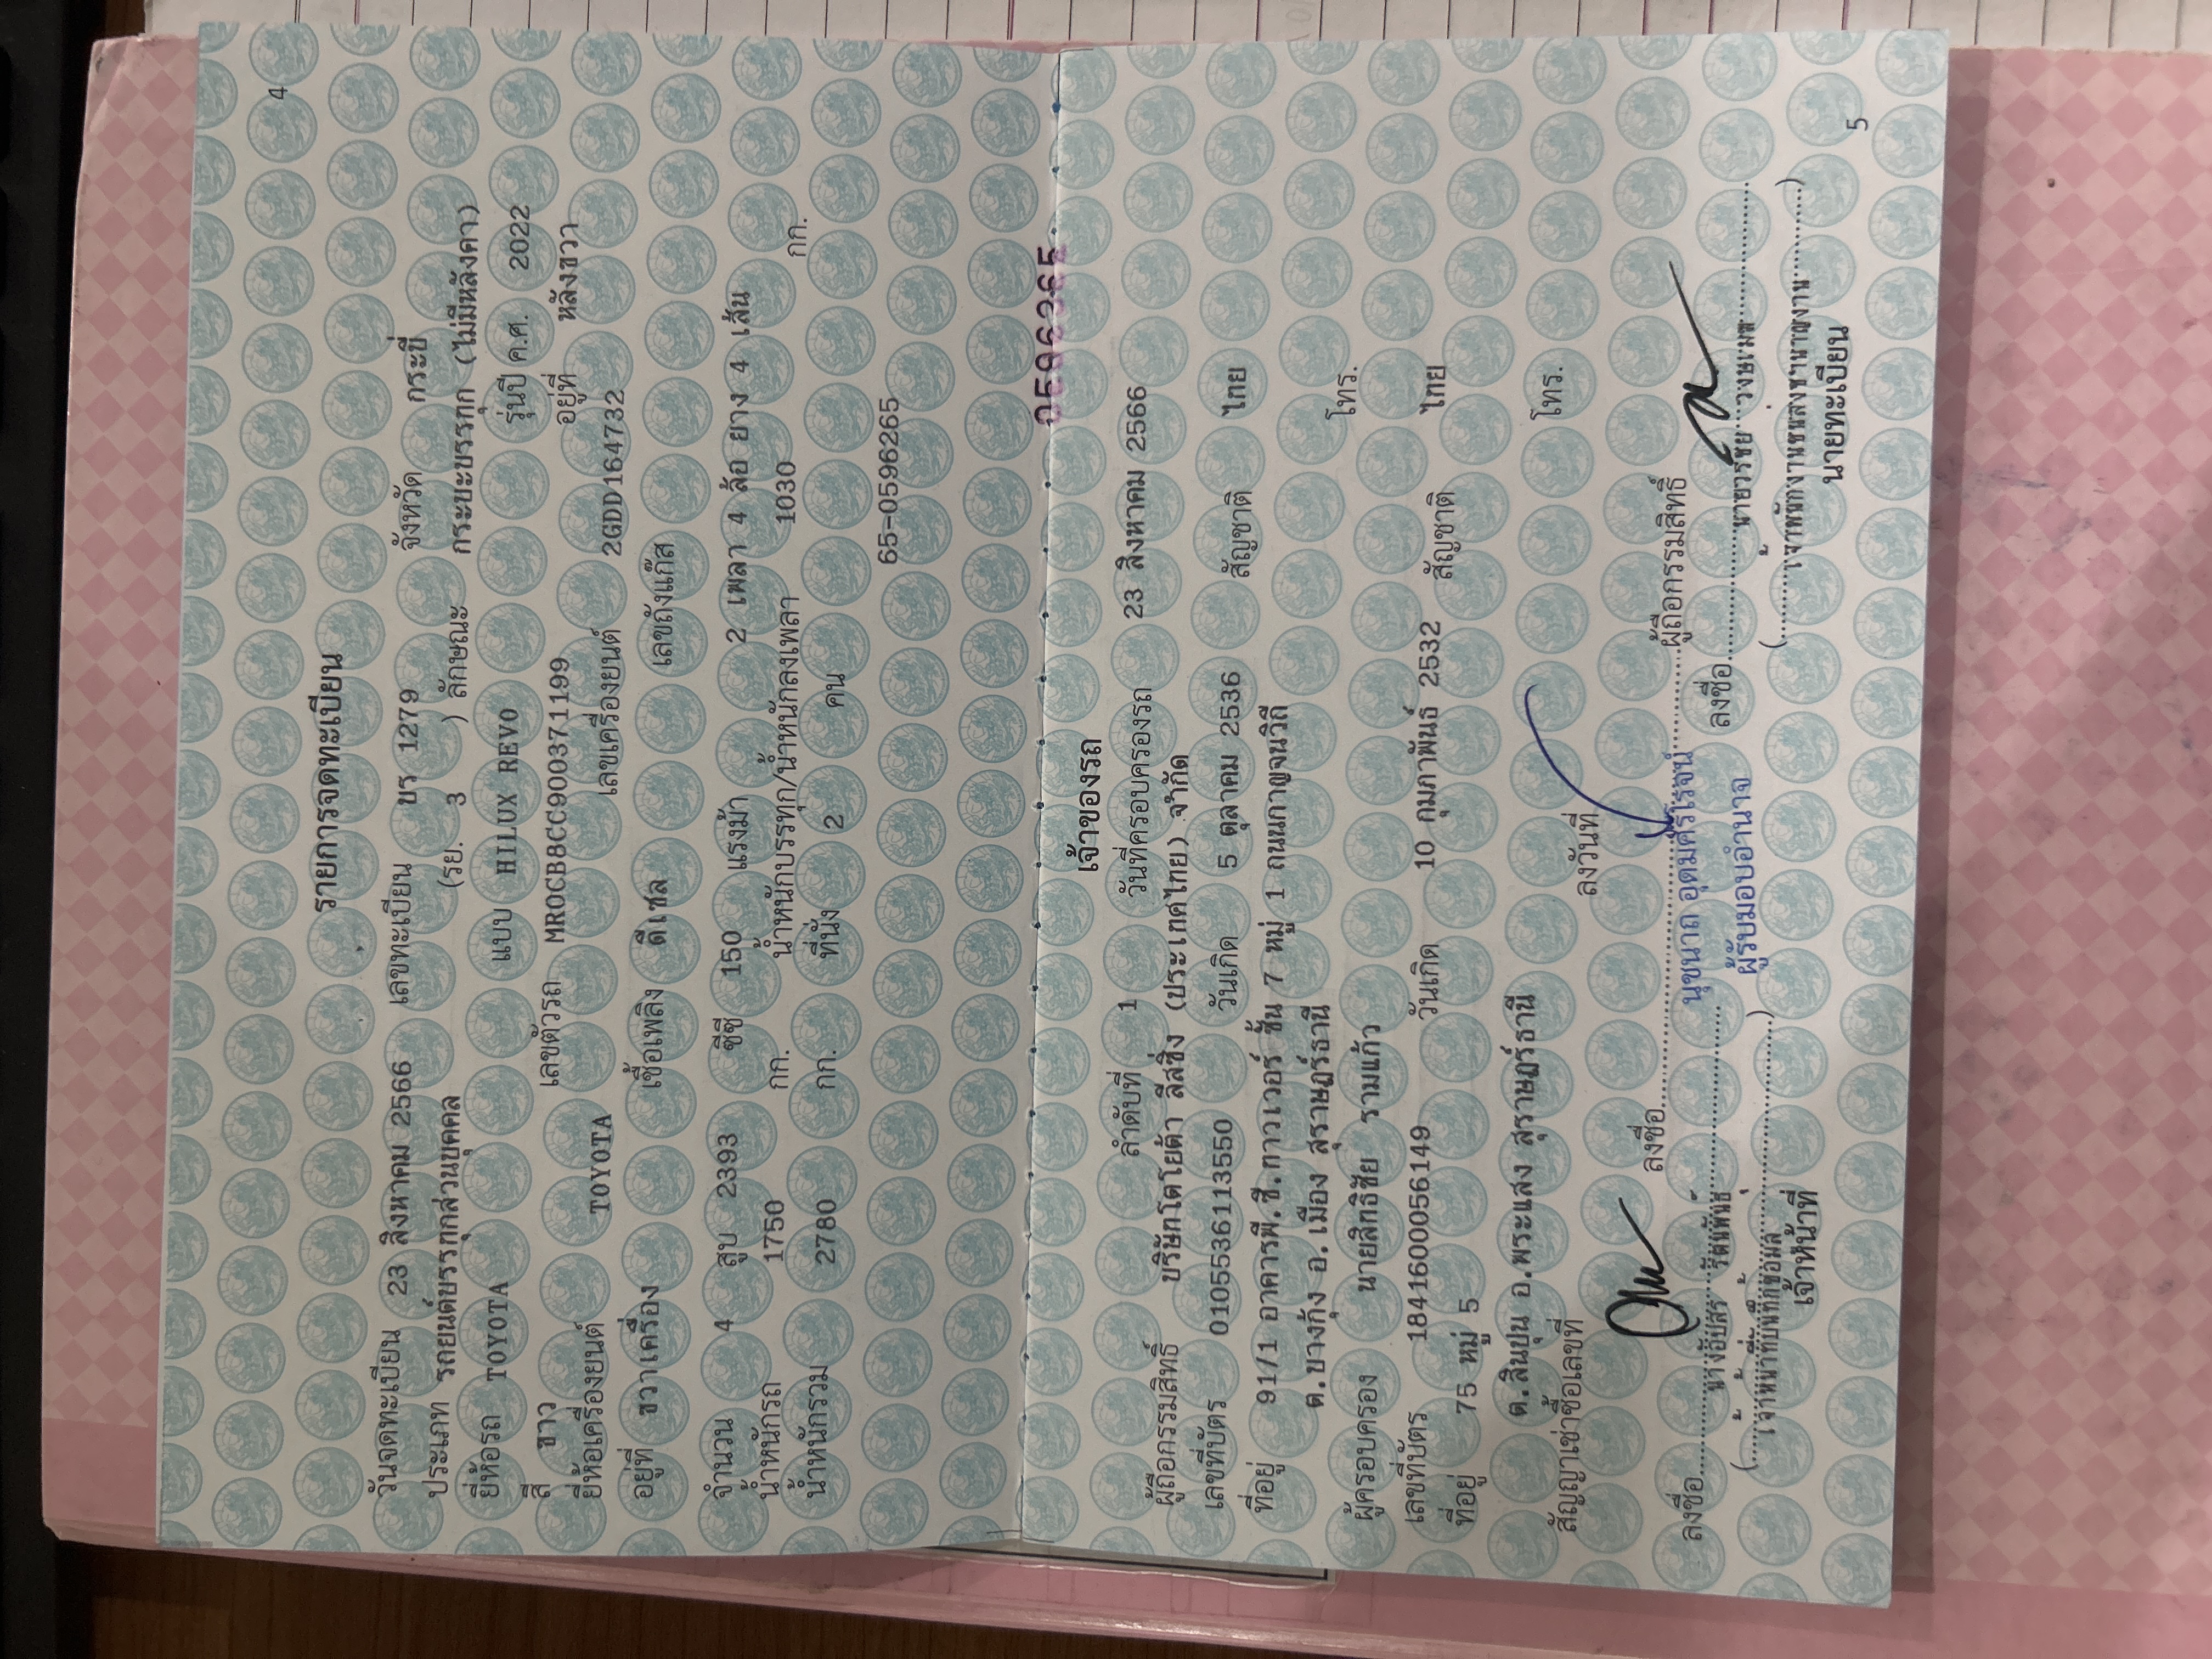 4
รายการจดทะเบียน
วันจดทะเบียน 23 สิงหาคม 2566 เลขทะเบียน บร 1279 จังหวัด กระบี่
ประเภท รถยนต์บรรทุกส่วนบุคคล (รย. 3 ) ลักษณะ กระบะบรรทุก (ไม่มีหลังคา)
ยี่ห้อรถ TOYOTA แบบ HILUX REVO รุ่นปี ค.ศ. 2022
สี ขาว เลขตัวรถ MR0CB8CC900371199 อยู่ที่ หลังขวา
ยี่ห้อเครื่องยนต์ TOYOTA เลขเครื่องยนต์ 2GDD164732
อยู่ที่ ขวาเครื่อง เชื้อเพลิง ดีเซล เลขถังแก๊ส
จำนวน 4 สูบ 2393 ซีซี 150 แรงม้า 2 เพลา 4 ล้อ ยาง 4 เส้น
น้ำหนักรถ 1750 กก. น้ำหนักบรรทุก/น้ำหนักลงเพลา 1030 กก.
น้ำหนักรวม 2780 กก. ที่นั่ง 2 คน
65-0596265
0596265
เจ้าของรถ
ลำดับที่ 1 วันที่ครอบครองรถ 23 สิงหาคม 2566
ผู้ถือกรรมสิทธิ์ บริษัทโตโยต้า ลีสซิ่ง (ประเทศไทย) จำกัด
เลขที่บัตร 0105536113550 วันเกิด 5 ตุลาคม 2536 สัญชาติ ไทย
ที่อยู่ 91/1 อาคารพี.ซี.ทาวเวอร์ ชั้น 7 หมู่ 1 ถนนกาญจนวิถี
ต.บางกุ้ง อ.เมือง สุราษฎร์ธานี โทร.
ผู้ครอบครอง นายสิทธิชัย รามแก้ว
เลขที่บัตร 1841600056149 วันเกิด 10 กุมภาพันธ์ 2532 สัญชาติ ไทย
ที่อยู่ 75 หมู่ 5
ต.สินปุน อ.พระแสง สุราษฎร์ธานี โทร.
สัญญาเช่าซื้อเลขที่ ลงวันที่
ลงชื่อ ผู้ถือกรรมสิทธิ์
นุชนาถ อุดมศิริโรจน์
ผู้รับมอบอำนาจ
ลงชื่อ นางอัปสร รัตนพันธ์ ลงชื่อ นายวรชัย วงษเมฆ
(เจ้าหน้าที่บันทึกข้อมูล) (เจ้าพนักงานขนส่งชำนาญงาน)
เจ้าหน้าที่ นายทะเบียน
5